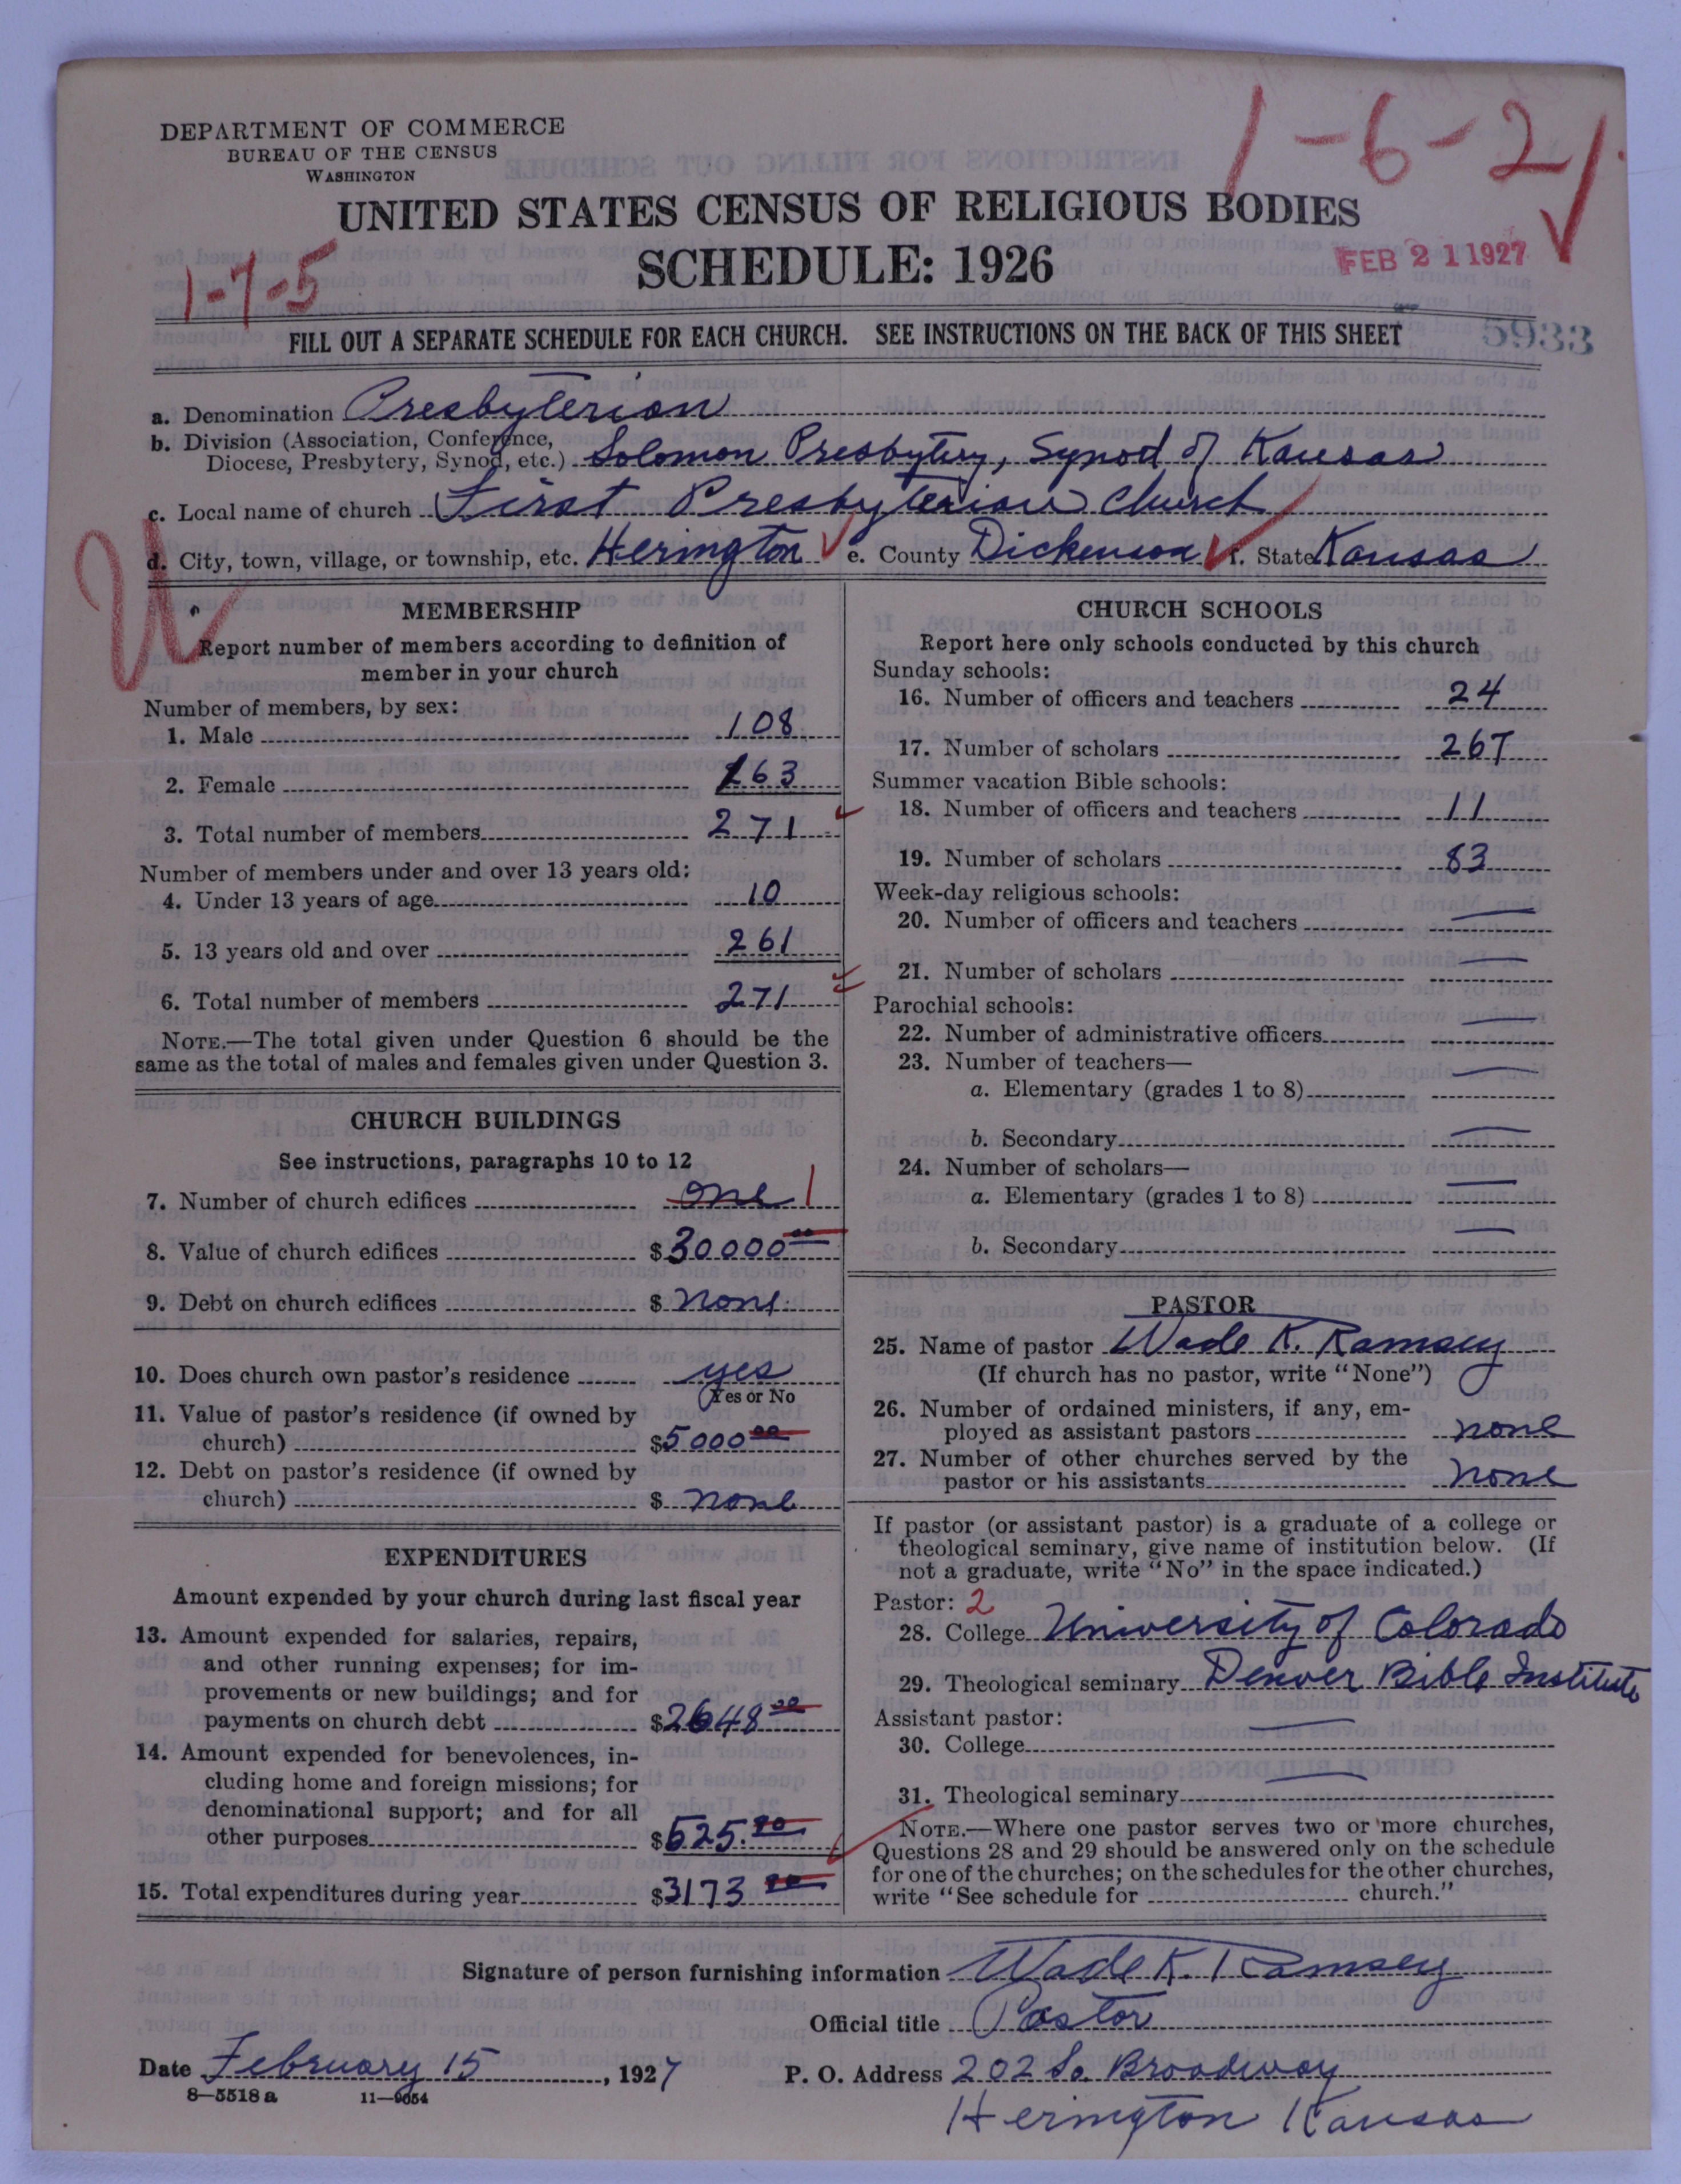 1-6-2
DEPARTMENT OF COMMERCE
BUREAU OF THE CENSUS
WASHINGTON
UNITED STATES CENSUS OF RELIGIOUS BODIES
SCHEDULE: 1926
1-7-5
FEB 21 1927
FILL OUT A SEPARATE SCHEDULE FOR EACH CHURCH. SEE INSTRUCTIONS ON THE BACK OF THIS SHEET
5933
a. Denomination Presbyterian
b. Division (Association, Conference,
Diocese, Presbytery, Synod, etc.) Solomon Presbytery, Synod of Kansas
c. Local name of church First Presbyterian Church
d. City, town, village, or township, etc. Herington e. County Dickenson f. State Kansas
MEMBERSHIP
Report number of members according to definition of
member in your church
Number of members, by sex:
1. Male 108
2. Female 163
3. Total number of members 271
Number of members under and over 13 years old:
4. Under 13 years of age 10
5. 13 years old and over 261
6. Total number of members 271
NOTE.—The total given under Question 6 should be the
same as the total of males and females given under Question 3.
CHURCH BUILDINGS
See instructions, paragraphs 10 to 12
7. Number of church edifices one 1
8. Value of church edifices $30000 00
9. Debt on church edifices $ none
10. Does church own pastor's residence yes
Yes or No
11. Value of pastor's residence (if owned by
church) $5000 00
12. Debt on pastor's residence (if owned by
church) $ none
EXPENDITURES
Amount expended by your church during last fiscal year
13. Amount expended for salaries, repairs,
and other running expenses; for im-
provements or new buildings; and for
payments on church debt $2648
14. Amount expended for benevolences, in-
cluding home and foreign missions; for
denominational support; and for all
other purposes $525.
15. Total expenditures during year $3173
CHURCH SCHOOLS
Report here only schools conducted by this church
Sunday schools:
16. Number of officers and teachers 24
17. Number of scholars 267
Summer vacation Bible schools:
18. Number of officers and teachers 11
19. Number of scholars 83
Week-day religious schools:
20. Number of officers and teachers —
21. Number of scholars —
Parochial schools:
22. Number of administrative officers —
23. Number of teachers—
a. Elementary (grades 1 to 8) —
b. Secondary —
24. Number of scholars—
a. Elementary (grades 1 to 8) —
b. Secondary —
PASTOR
25. Name of pastor Wade K. Ramsey
(If church has no pastor, write "None")
26. Number of ordained ministers, if any, em-
ployed as assistant pastors none
27. Number of other churches served by the
pastor or his assistants none
If pastor (or assistant pastor) is a graduate of a college or
theological seminary, give name of institution below. (If
not a graduate, write "No" in the space indicated.)
Pastor: 2
28. College University of Colorado
29. Theological seminary Denver Bible Institute
Assistant pastor:
30. College —
31. Theological seminary —
NOTE.—Where one pastor serves two or more churches,
Questions 28 and 29 should be answered only on the schedule
for one of the churches; on the schedules for the other churches,
write "See schedule for church."
Signature of person furnishing information Wade K. Ramsey
Official title Pastor
Date February 15, 1927 P. O. Address 202 So. Broadway
8—5518 a 11—9054
Herington Kansas